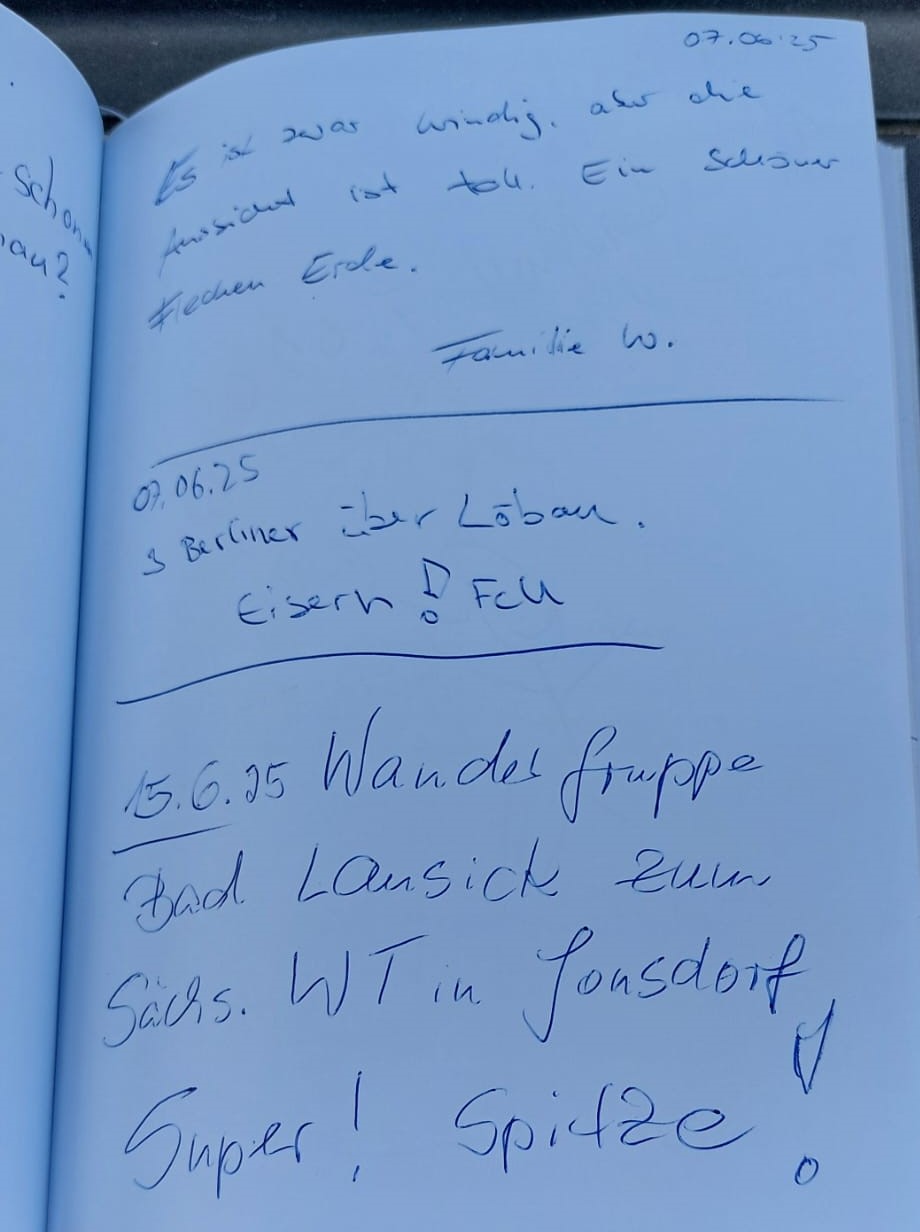 schon
au?
07.06.25
Es ist zwar windig, aber die
Aussicht ist toll. Ein schöner
Flecken Erde.
Familie W.
07.06.25
3 Berliner über Löbau.
Eisern! FCU
15.6.25 Wandergruppe
Bad Lausick zum
Sächs. WT in Jonsdorf
Super! Spitze!